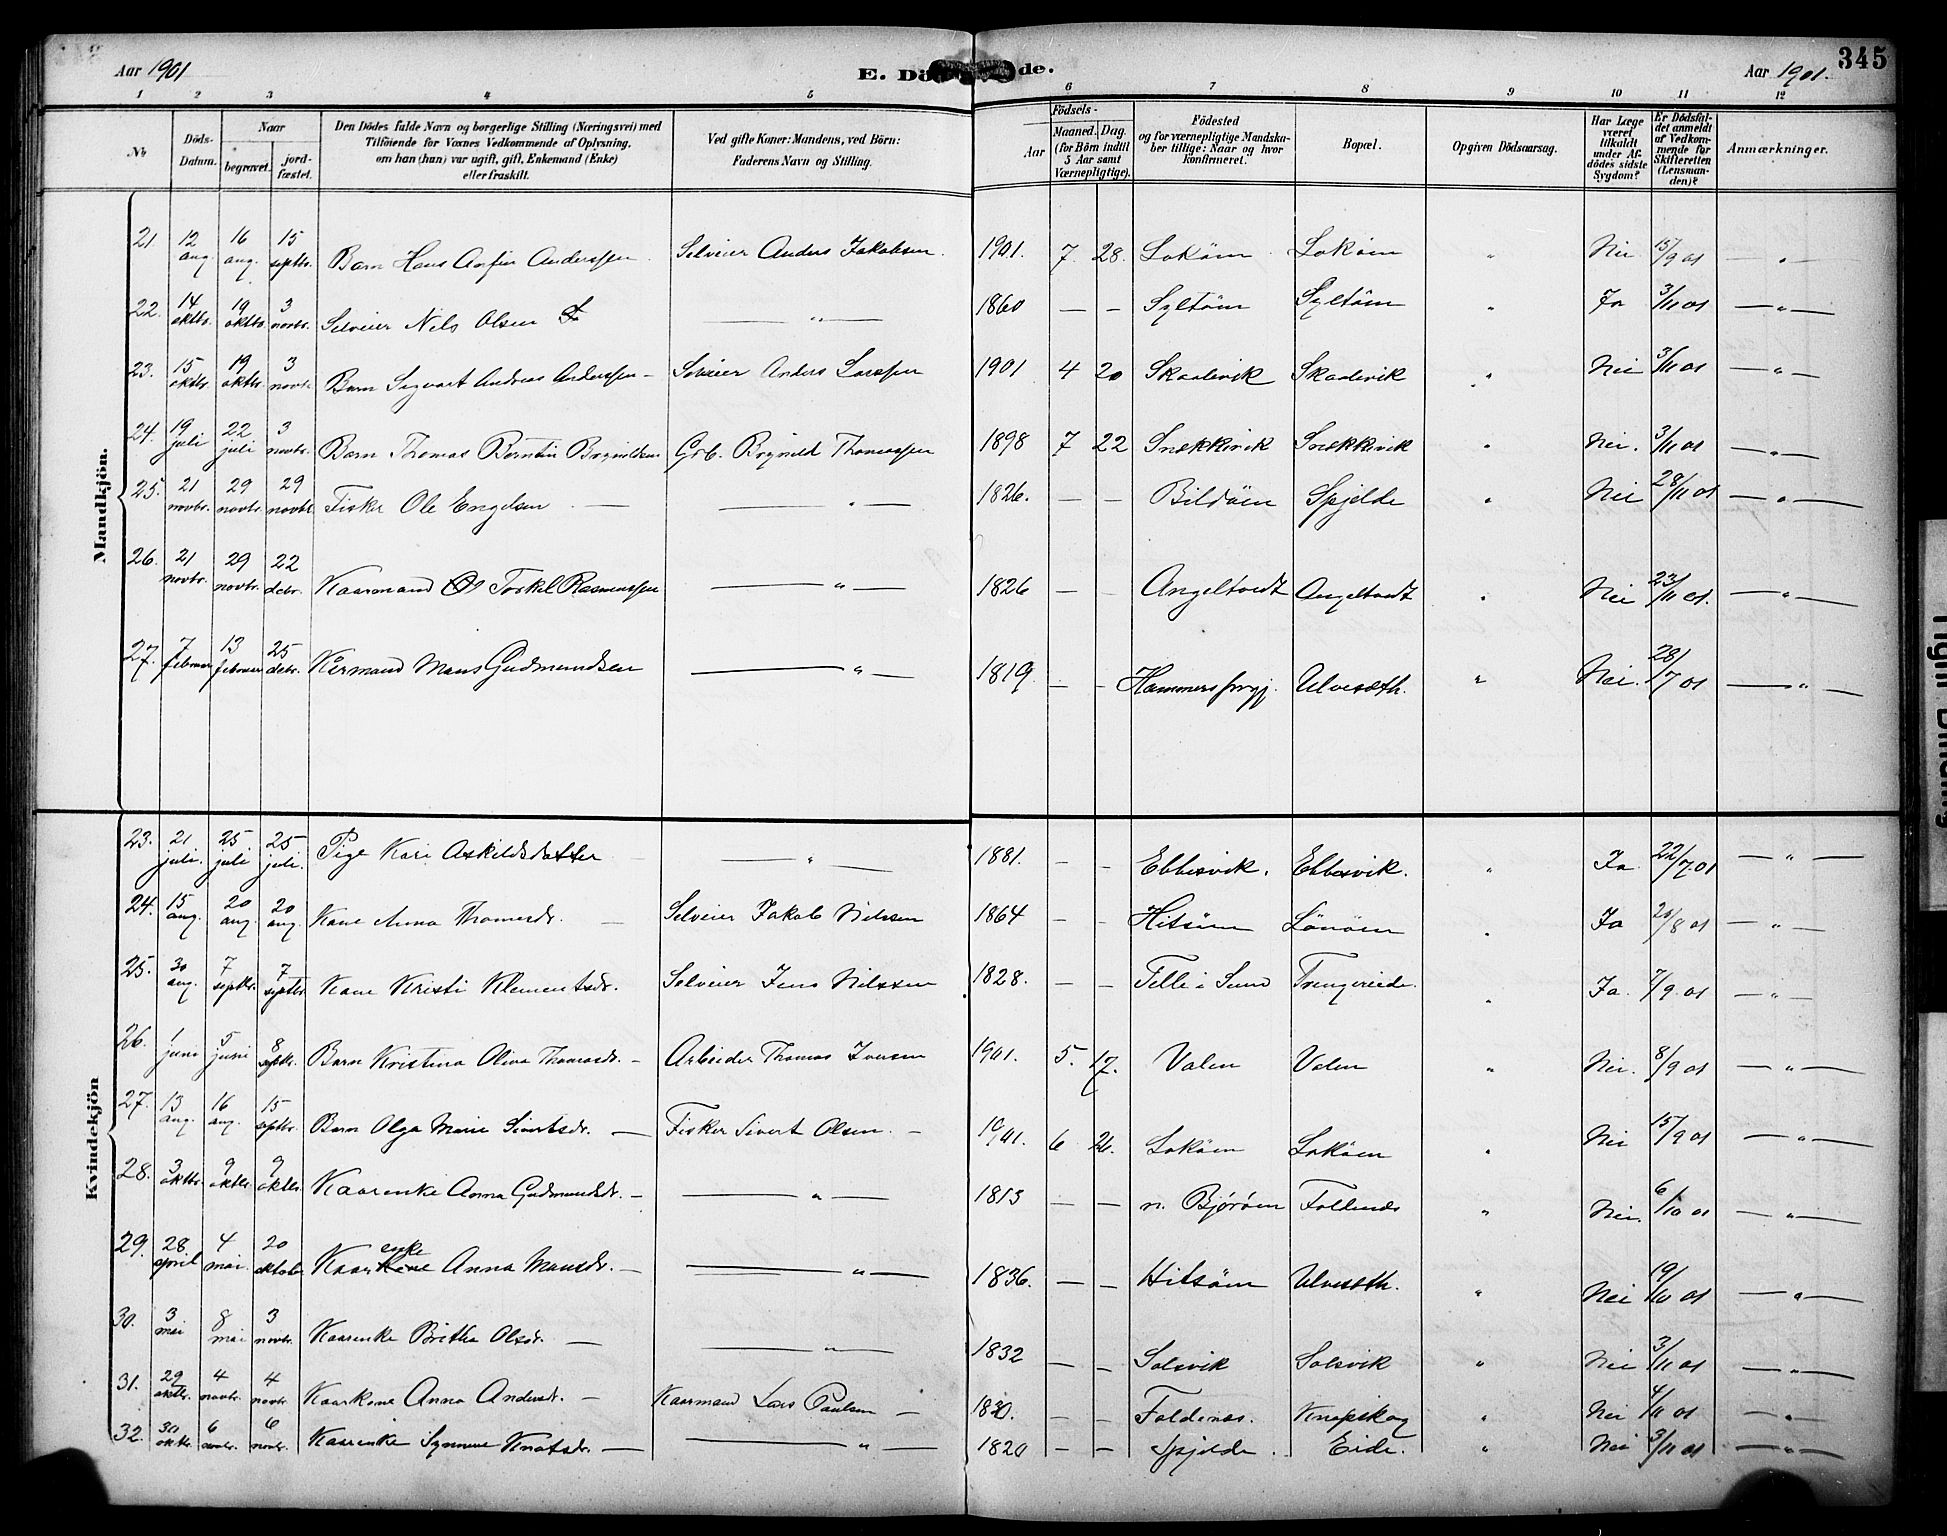 Aar 1901 E. Dö de. Aar 1901. 345
1 2 3 4 5 6 7 8 9 10 11 12
No
Döds-Datum.
Naar
begravet.
jord-fæstet.
Den Dödes fulde Navn og borgerlige Stilling (Næringsvei) med
Tilföiende for Voxnes Vedkommende af Oplysning,
om han (hun) var ugift, gift, Enkemand (Enke)
eller fraskilt.
Ved gifte Koner: Mandens, ved Börn:
Faderens Navn og Stilling.
Födsels-
Aar
Maaned. Dag.
(for Börn indtil
5 Aar samt
Værnepligtige).
Födested
og for værnepligtige Mandska-
ber tillige: Naar og hvor
konfirmeret.
Bopæl.
Opgiven Dödsaarsag.
Har Læge
været
tilkaldt
under Af-
dödes sidste
Sygdom?
Er Dödsfal-
det anmeldt
af Vedkom-
mende for
Skifteretten
(Lensman-
den)?
Anmærkninger.
Mandkjön.
21. 12 aug. 16 aug. 15 septbr. Barn Hans Anfin Anderssen. Selveier Anders Jakobsen. 1901. 7. 28. Lokøen Lokøen " Nei 15/9 01 — " —
22. 14 oktbr. 19 oktbr. 3 novbr. Selveier Nils Olsen — " — 1860 — — Syltøen Syltøen " Ja 3/11 01 — " —
23. 15 oktbr. 19 oktbr. 3 novbr. Barn Sigvart Andreas Anderssen — Selveier Anders Larssen 1901 4 20 Skaalevik Skaalevik " Nei 3/11 01 — " —
24. 19 juli 22 juli 3 novbr. Barn Thomas Berntin Brynildsen Grb. Brynild Thomassen 1898 7 22 Snekkevik Snekkevik " Nei. 3/11 01 — " —
25. 21 novbr. 29 novbr. 29 novbr. Fisker Ole Engelsen — — " — 1826. — — Bildøen Spjelde " Nei 28/11 01 — " —
26. 21 novbr. 29 novbr. 22 debr. Kaarmand Torkel Rasmussen — " — 1826 — — Angeltvedt Angeltvedt " Nei 23/11 01. — " —
27. 7 februar 13 februar 25 debr. Kårmand Mons Gudmundsen — " — 1819 — — Hammers prgj. Ulvesæth. " Nei. 28/7 01 — " —
Kvindekjön
23. 21 juli. 25 juli 25 juli. Pige Kari Askildsdatter — " — 1881. — — Ebbesvik. Ebbesvik. " Ja 22/7.01 — " —
24. 15 aug. 20 aug. 20 aug. Kone Anna Thomasdr. — Selveier Jakob Nilssen 1864 — — Hitsøen Lønøen " Ja 20/8 01 — " —
25. 30 aug. 7 septbr. 7 septbr. Kone Kristi Klementsdr. Selveier Jens Nilssen 1828. — — Telle i Sund Trengereide. " Ja. 7/9.01 — " —
26. 1 juni 5 juni 8 septbr. Barn Kristina Oliva Thomasdr. — Arbeider Thomas Iversen 1901. 5. 17. Valen Valen " Nei. 8/9 01 — " —
27. 13 aug. 16 aug. 15 septbr. Barn Olga Marie Sivertsdr. — Fisker Sivert Olsen. — 1901. 6 26. Lokøen Lokøen " Nei 15/9 01 — " —
28. 3 oktbr. 9 oktbr. 9 oktbr. Kaarenke Anna Gudmundsdr. — — " — 1813 — — n. Bjørøen Foldenæs " Nei. 6/10 01 — " —
29. 28. april 4 mai. 20 oktober Kaarkone enke Anna Monsdr. — — " — 1836. — — Hitsøen Ulvesæth. " Nei 19/10 01 — " —
30. 3 mai 8 mai 3 novbr. Kaarenke Britha Olsdr. — — " — 1832 — — Solsvik Solsvik " Nei 3/11 01 — " —
31. 29 oktbr. 4 novbr. 4 novbr. Kaarkone Anna Andersdr. — Kaarmand Lars Paulsen — 1830. — — Foldenæs. Knapskog " Nei 4/11 01 — " —
32. 30 oktbr. 6 novbr. 6 novbr. Kaarenke Synneve Knutsdr. — — " — 1820 — — Spjelde. Eide. " Nei 3/11 01 — " —